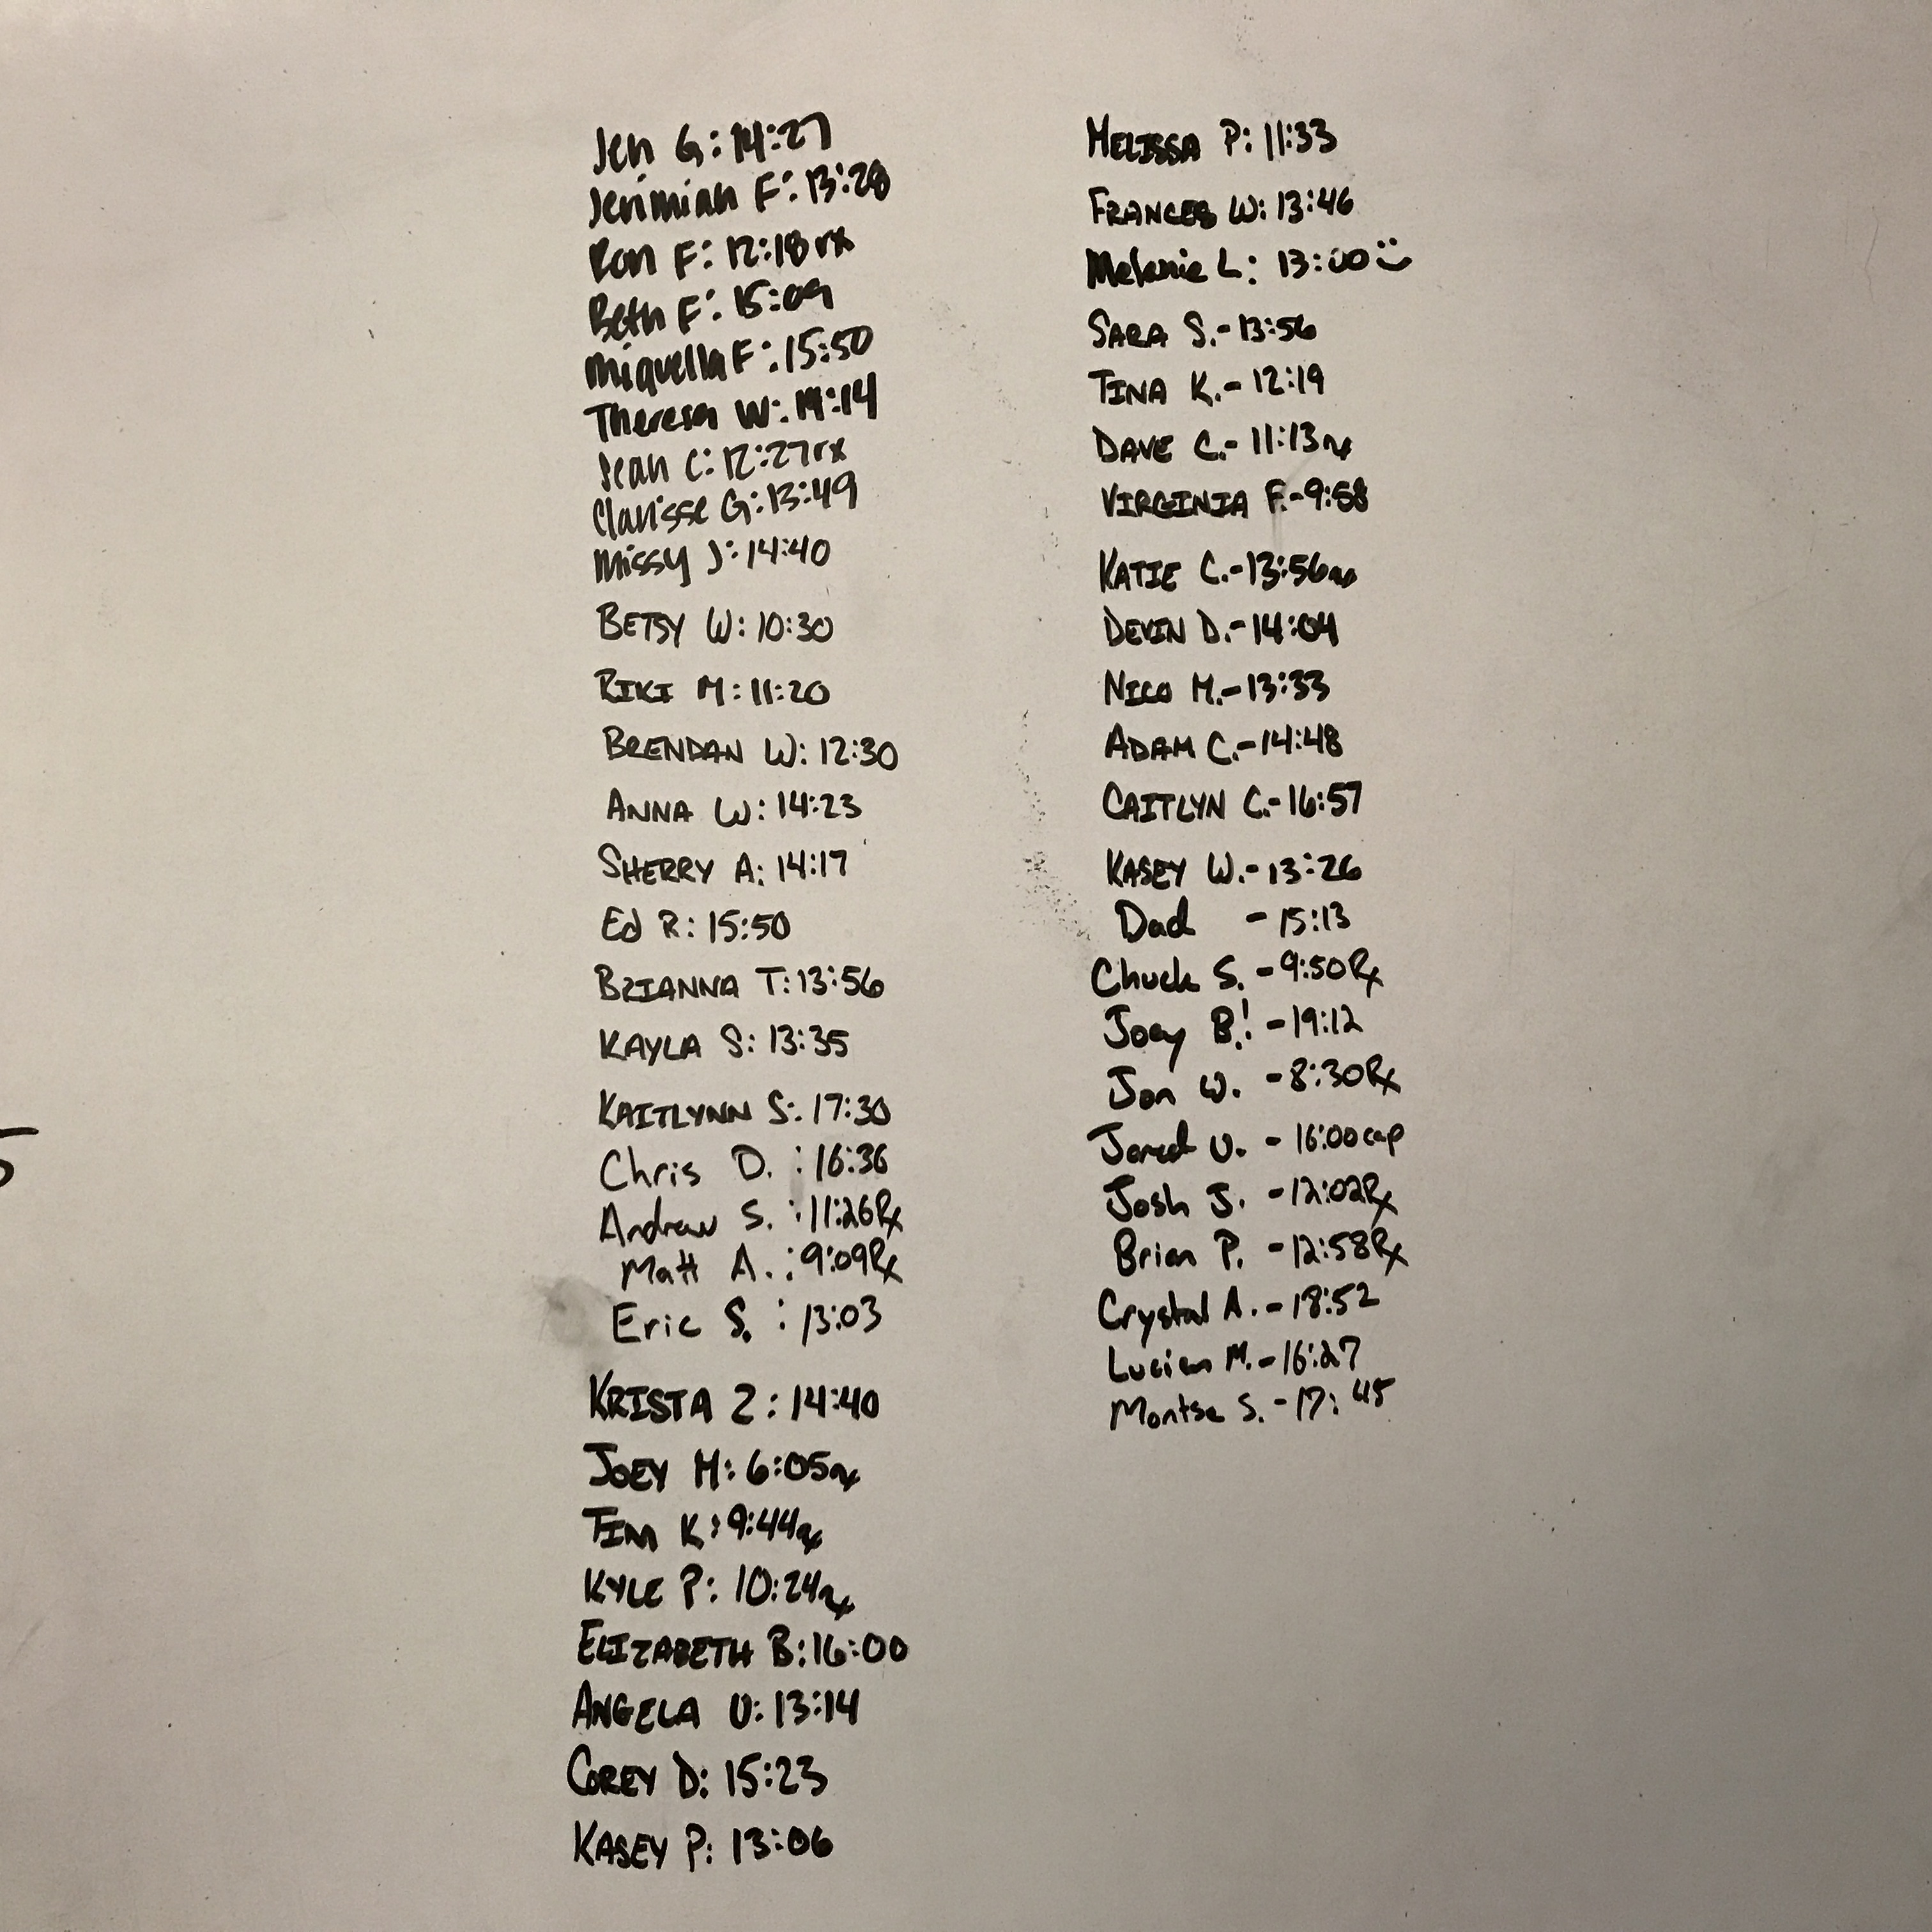 Jen G: 14:27
Jerimiah F: 13:28
Ron F: 12:18 rx
Beth F: 15:09
Miquella F: 15:50
Theresa W: 19:14
Sean C: 12:27 rx
Clarisse G: 13:49
Missy J: 14:40
BETSY W: 10:30
RIKI M: 11:20
BRENDAN W: 12:30
ANNA W: 14:23
SHERRY A: 14:17
Ed R: 15:50
BRIANNA T: 13:56
KAYLA S: 13:35
KAITLYNN S: 17:30
Chris D. : 16:36
Andrew S. : 11:26 Rx
Matt A. : 9:09 Rx
Eric S. : 13:03
KRISTA Z: 14:40
JOEY M: 6:05 rx
TIM K: 9:44 rx
KYLE P: 10:24 rx
ELIZABETH B: 16:00
ANGELA U: 13:14
COREY D: 15:23
KASEY P: 13:06
MELISSA P: 11:33
FRANCES W: 13:46
Melanie L: 13:00 :)
SARA S. - 13:56
TINA K. - 12:19
DAVE C. - 11:13 rx
VIRGINIA F. - 9:58
KATIE C. - 13:56 rx
DEVIN D. - 14:04
NICO M. - 13:33
ADAM C. - 14:48
CAITLYN C. - 16:57
KASEY W. - 13:26
Dad - 15:13
Chuck S. - 9:50 Rx
Joey B.! - 19:12
Jon W. - 8:30 Rx
Jared U. - 16:00 cap
Josh J. - 12:02 Rx
Brian P. - 12:58 Rx
Crystal A. - 18:52
Lucien M. - 16:27
Montse S. - 17:45